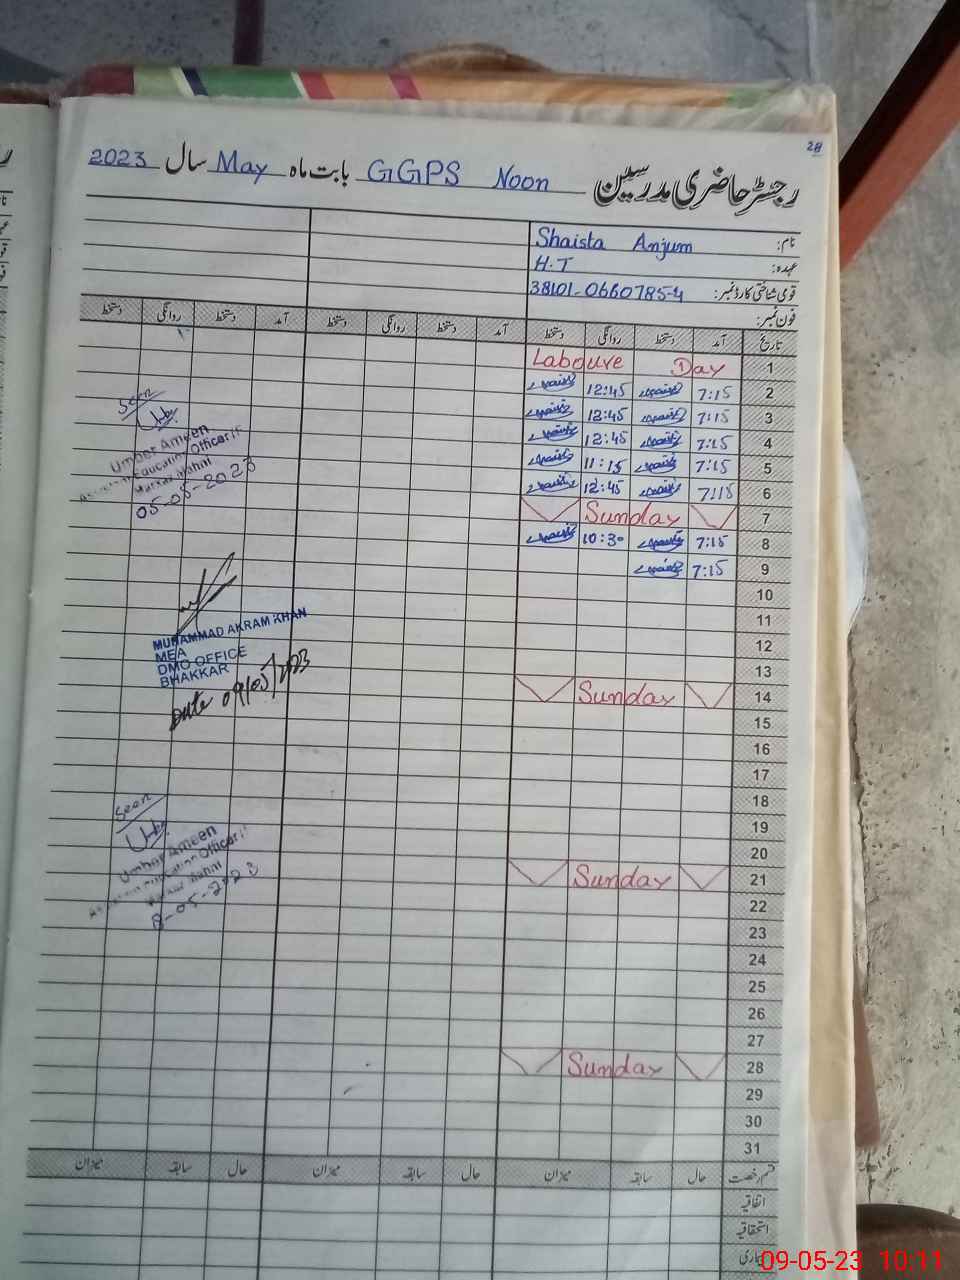 28
رجسٹر حاضری مدرسین GGPS Noon بابت ماہ May سال 2023
نام: Shaista Anjum
عہدہ: H.T
قومی شناختی کارڈ نمبر: 38101-0660785-4
فون نمبر:
تاریخ آمد دستخط روانگی دستخط آمد دستخط روانگی دستخط آمد دستخط روانگی دستخط
1 Laboure Day
2 7:15 12:45
3 7:15 12:45
4 7:15 12:45
5 7:15 11:15
6 7:15 12:45
7 Sunday
8 7:15 10:30
9 7:15
10
11
12
13
14 Sunday
15
16
17
18
19
20
21 Sunday
22
23
24
25
26
27
28 Sunday
29
30
31
قسم رخصت حال سابقہ میزان حال سابقہ میزان حال سابقہ میزان
اتفاقیہ
استحقاقیہ
بیماری
Seen
Umbar Ameen
Assistant Education Officer
Markaz Mahni
05-05-2023
MUHAMMAD AKRAM KHAN
MEA
DMO OFFICE
BHAKKAR
Date 09/05/2023
Seen
Umbar Ameen
Assistant Education Officer
Markaz Mahni
8-05-2023
09-05-23 10:11